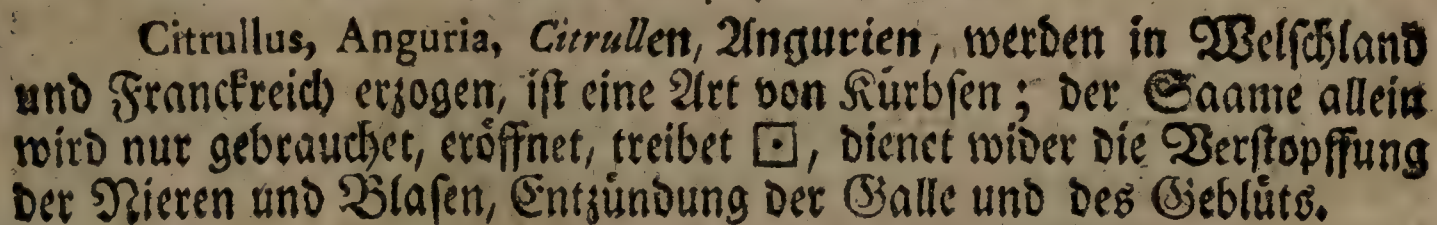 Citrullus, Anguria, Citrullen, Angurien, werden in Welschland
und Franckreich erzogen, ist eine Art von Kürbsen; der Saame allein
wird nur gebrauchet, eröffnet, treibet ⚀, dienet wider die Verstopffung
der Nieren und Blasen, Entzündung der Galle und des Geblüts.